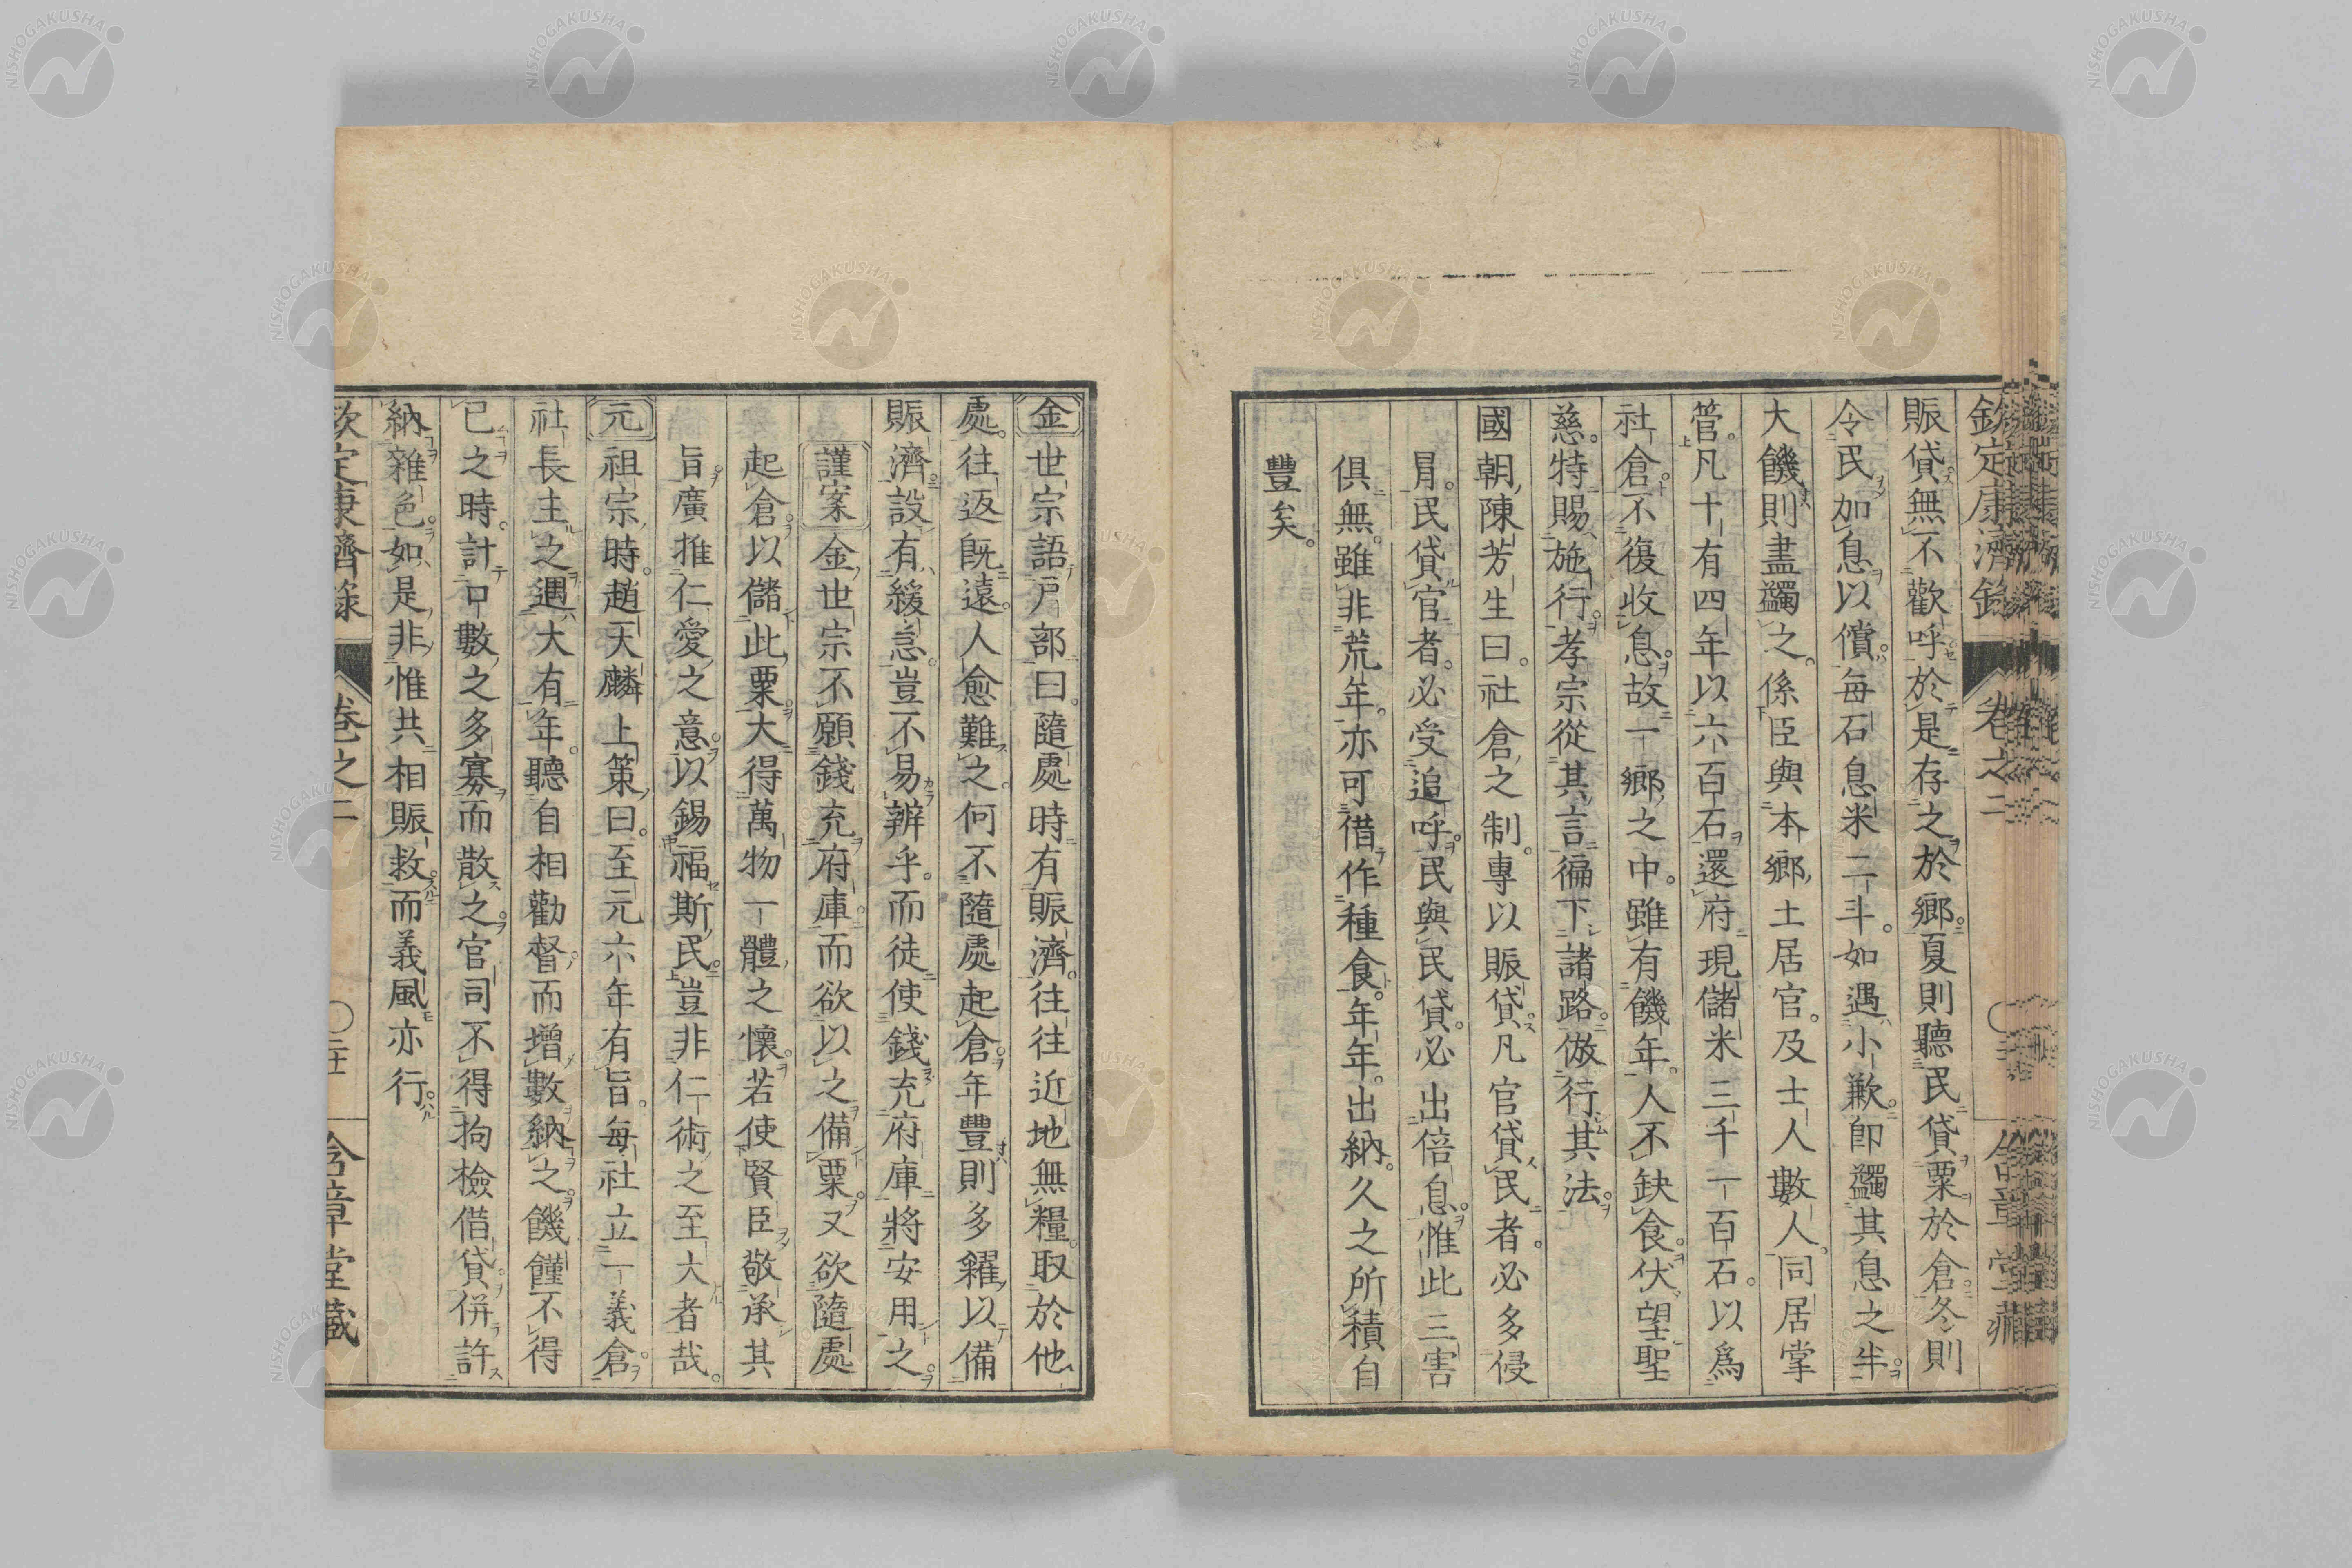 欽定康濟錄 卷之二
賑貸無不歡呼於是存之於鄉夏則聽民貸粟於倉冬則
令民加息以償每石息米二斗如遇小歉即蠲其息之半
大饑則盡蠲之係臣與本鄉土居官及士人數人同居掌
管凡十有四年以六百石還府現儲米三千一百石以爲
社倉不復收息故一鄉之中雖有饑年人不缺食伏望聖
慈特賜施行孝宗從其言徧下諸路倣行其法
國朝陳芳生曰社倉之制專以賑貸凡官貸民者必多侵
冒民貸官者必受追呼民與民貸必出倍息惟此三害
俱無雖非荒年亦可借作種食年年出納久之所積自
豐矣
金世宗語戶部曰隨處時有賑濟往往近地無糧取於他
處往返既遠人愈難之何不隨處起倉年豐則多糴以備
賑濟設有緩急豈不易辨乎而徒使錢充府庫將安用之
謹案金世宗不願錢充府庫而欲以之備粟又欲隨處
起倉以儲此粟大得萬物一體之懷若使賢臣敬承其
旨廣推仁愛之意以錫福斯民豈非仁術之至大者哉
元祖宗時趙天麟上策曰至元六年有旨每社立一義倉
社長主之遇大有年聽自相勸督而增數納之饑饉不得
已之時計口數之多寡而散之官司不得拘檢借貸併許
納雜色如是非惟共相賑救而義風亦行
欽定康濟錄 卷之二 含章堂藏
NISHOGAKUSHA